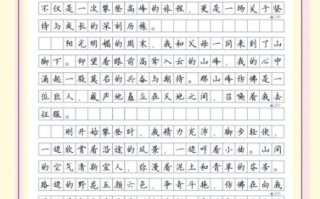 不仅是一次攀登高峰的旅程，更是一场关于坚
持与成长的深刻历练。
阳光明媚的周末，我和父母一同来到了山
脚下。仰望着眼前高耸入云的山峰，我的心中
涌起一股莫名的兴奋与期待。那山峰仿佛是一
位巨人，威严地矗立在天地之间，召唤着我去
征服。
刚开始攀登时，我精力充沛，脚步轻快，
一边欣赏着沿途的风景，一边哼着小曲。山间
的空气清新宜人，弥漫着泥土和青草的芬芳。
路边的野花五颜六色，争奇斗艳，仿佛在向我